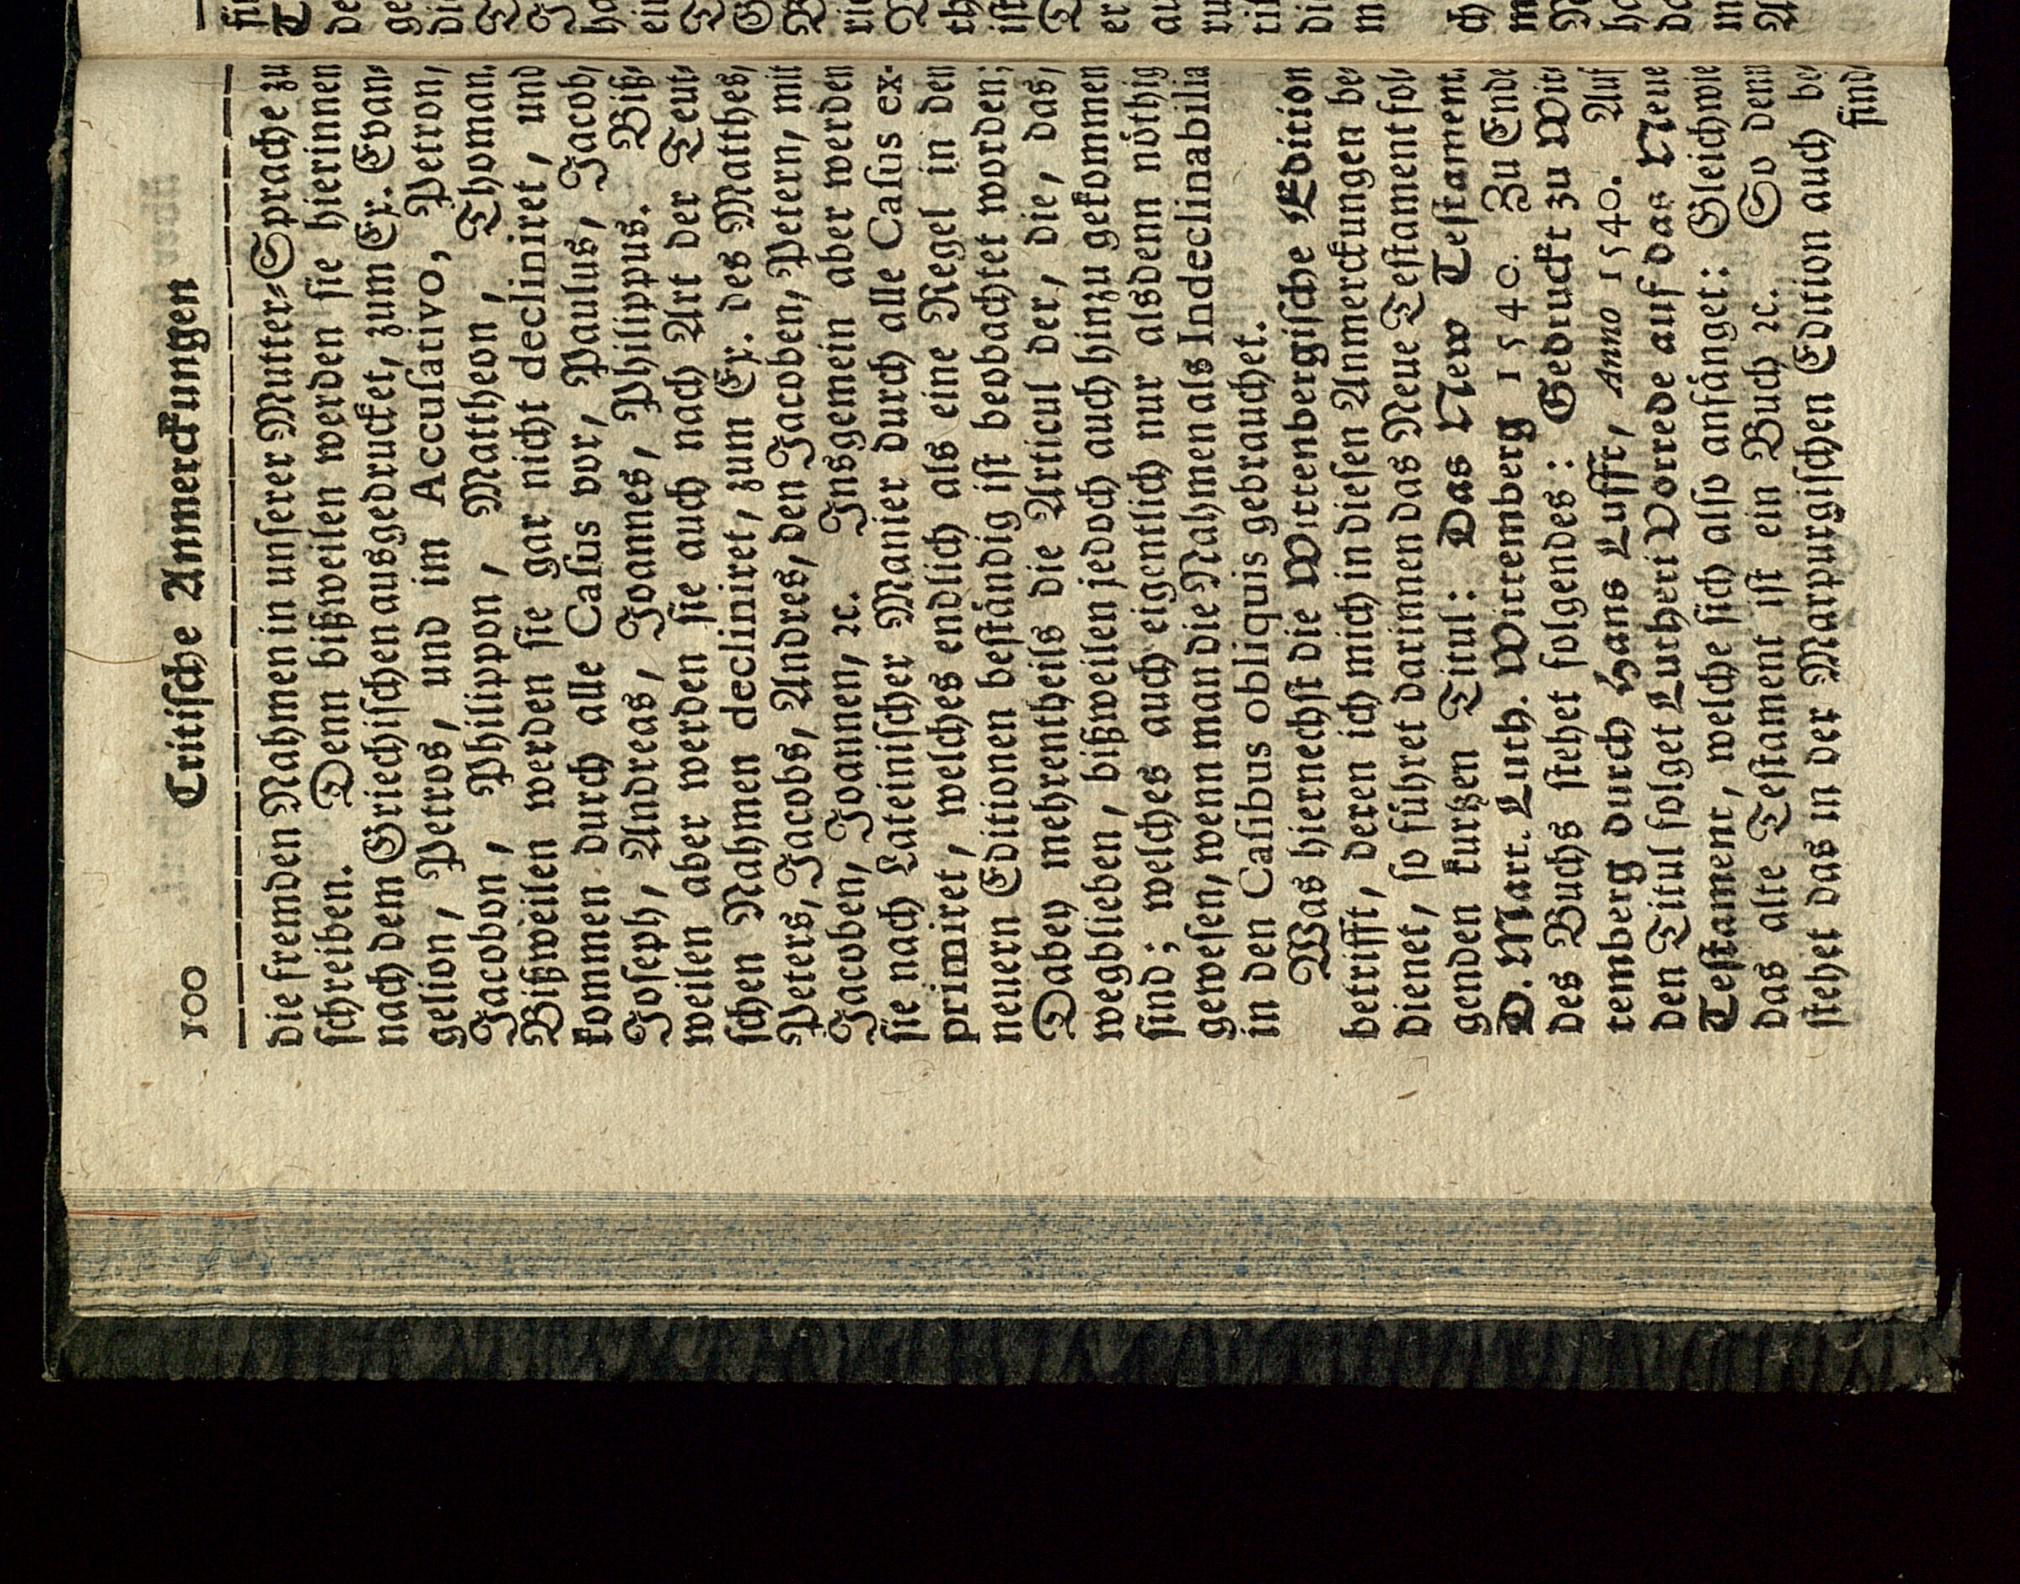 100 Critische Anmerckungen
die fremden Nahmen in unserer Mutter-Sprache zu
schreiben. Denn bißweilen werden sie hierinnen
nach dem Griechischen ausgedrucket, zum Ex. Evan-
gelion, Petros, und im Accusativo, Petron,
Jacobon, Philippon, Mattheon, Thoman.
Bißweilen werden sie gar nicht decliniret, und
kommen durch alle Casus vor, Paulus, Jacob,
Joseph, Andreas, Joannes, Philippus. Biß-
weilen aber werden sie auch nach Art der Teut-
schen Nahmen decliniret, zum Ex. des Matthes,
Peters, Jacobs, Andres, den Jacoben, Petern, mit
Jacoben, Joannen, ꝛc. Insgemein aber werden
sie nach Lateinischer Manier durch alle Casus ex-
primiret, welches endlich als eine Regel in den
neuern Editionen beständig ist beobachtet worden;
Dabey mehrentheils die Articul der, die, das,
wegblieben, bißweilen jedoch auch hinzu gekommen
sind; welches auch eigentlich nur alsdenn nöthig
gewesen, wenn man die Nahmen als Indeclinabilia
in den Casibus obliquis gebrauchet.
Was hiernechst die Wittenbergische Edition
betrifft, deren ich mich in diesen Anmerckungen be-
dienet, so führet darinnen das Neue Testament fol-
genden kurtzen Titul: Das New Testament.
D. Mart. Luth. Wittemberg 1540. Zu Ende
des Buchs stehet folgendes: Gedruckt zu Wit-
temberg durch Hans Lufft, Anno 1540. Auf
den Titul folget Lutheri Vorrede auf das Neue
Testament, welche sich also anfänget: Gleichwie
das alte Testament ist ein Buch ꝛc. So denn
stehet das in der Marpurgischen Edition auch be-
find-